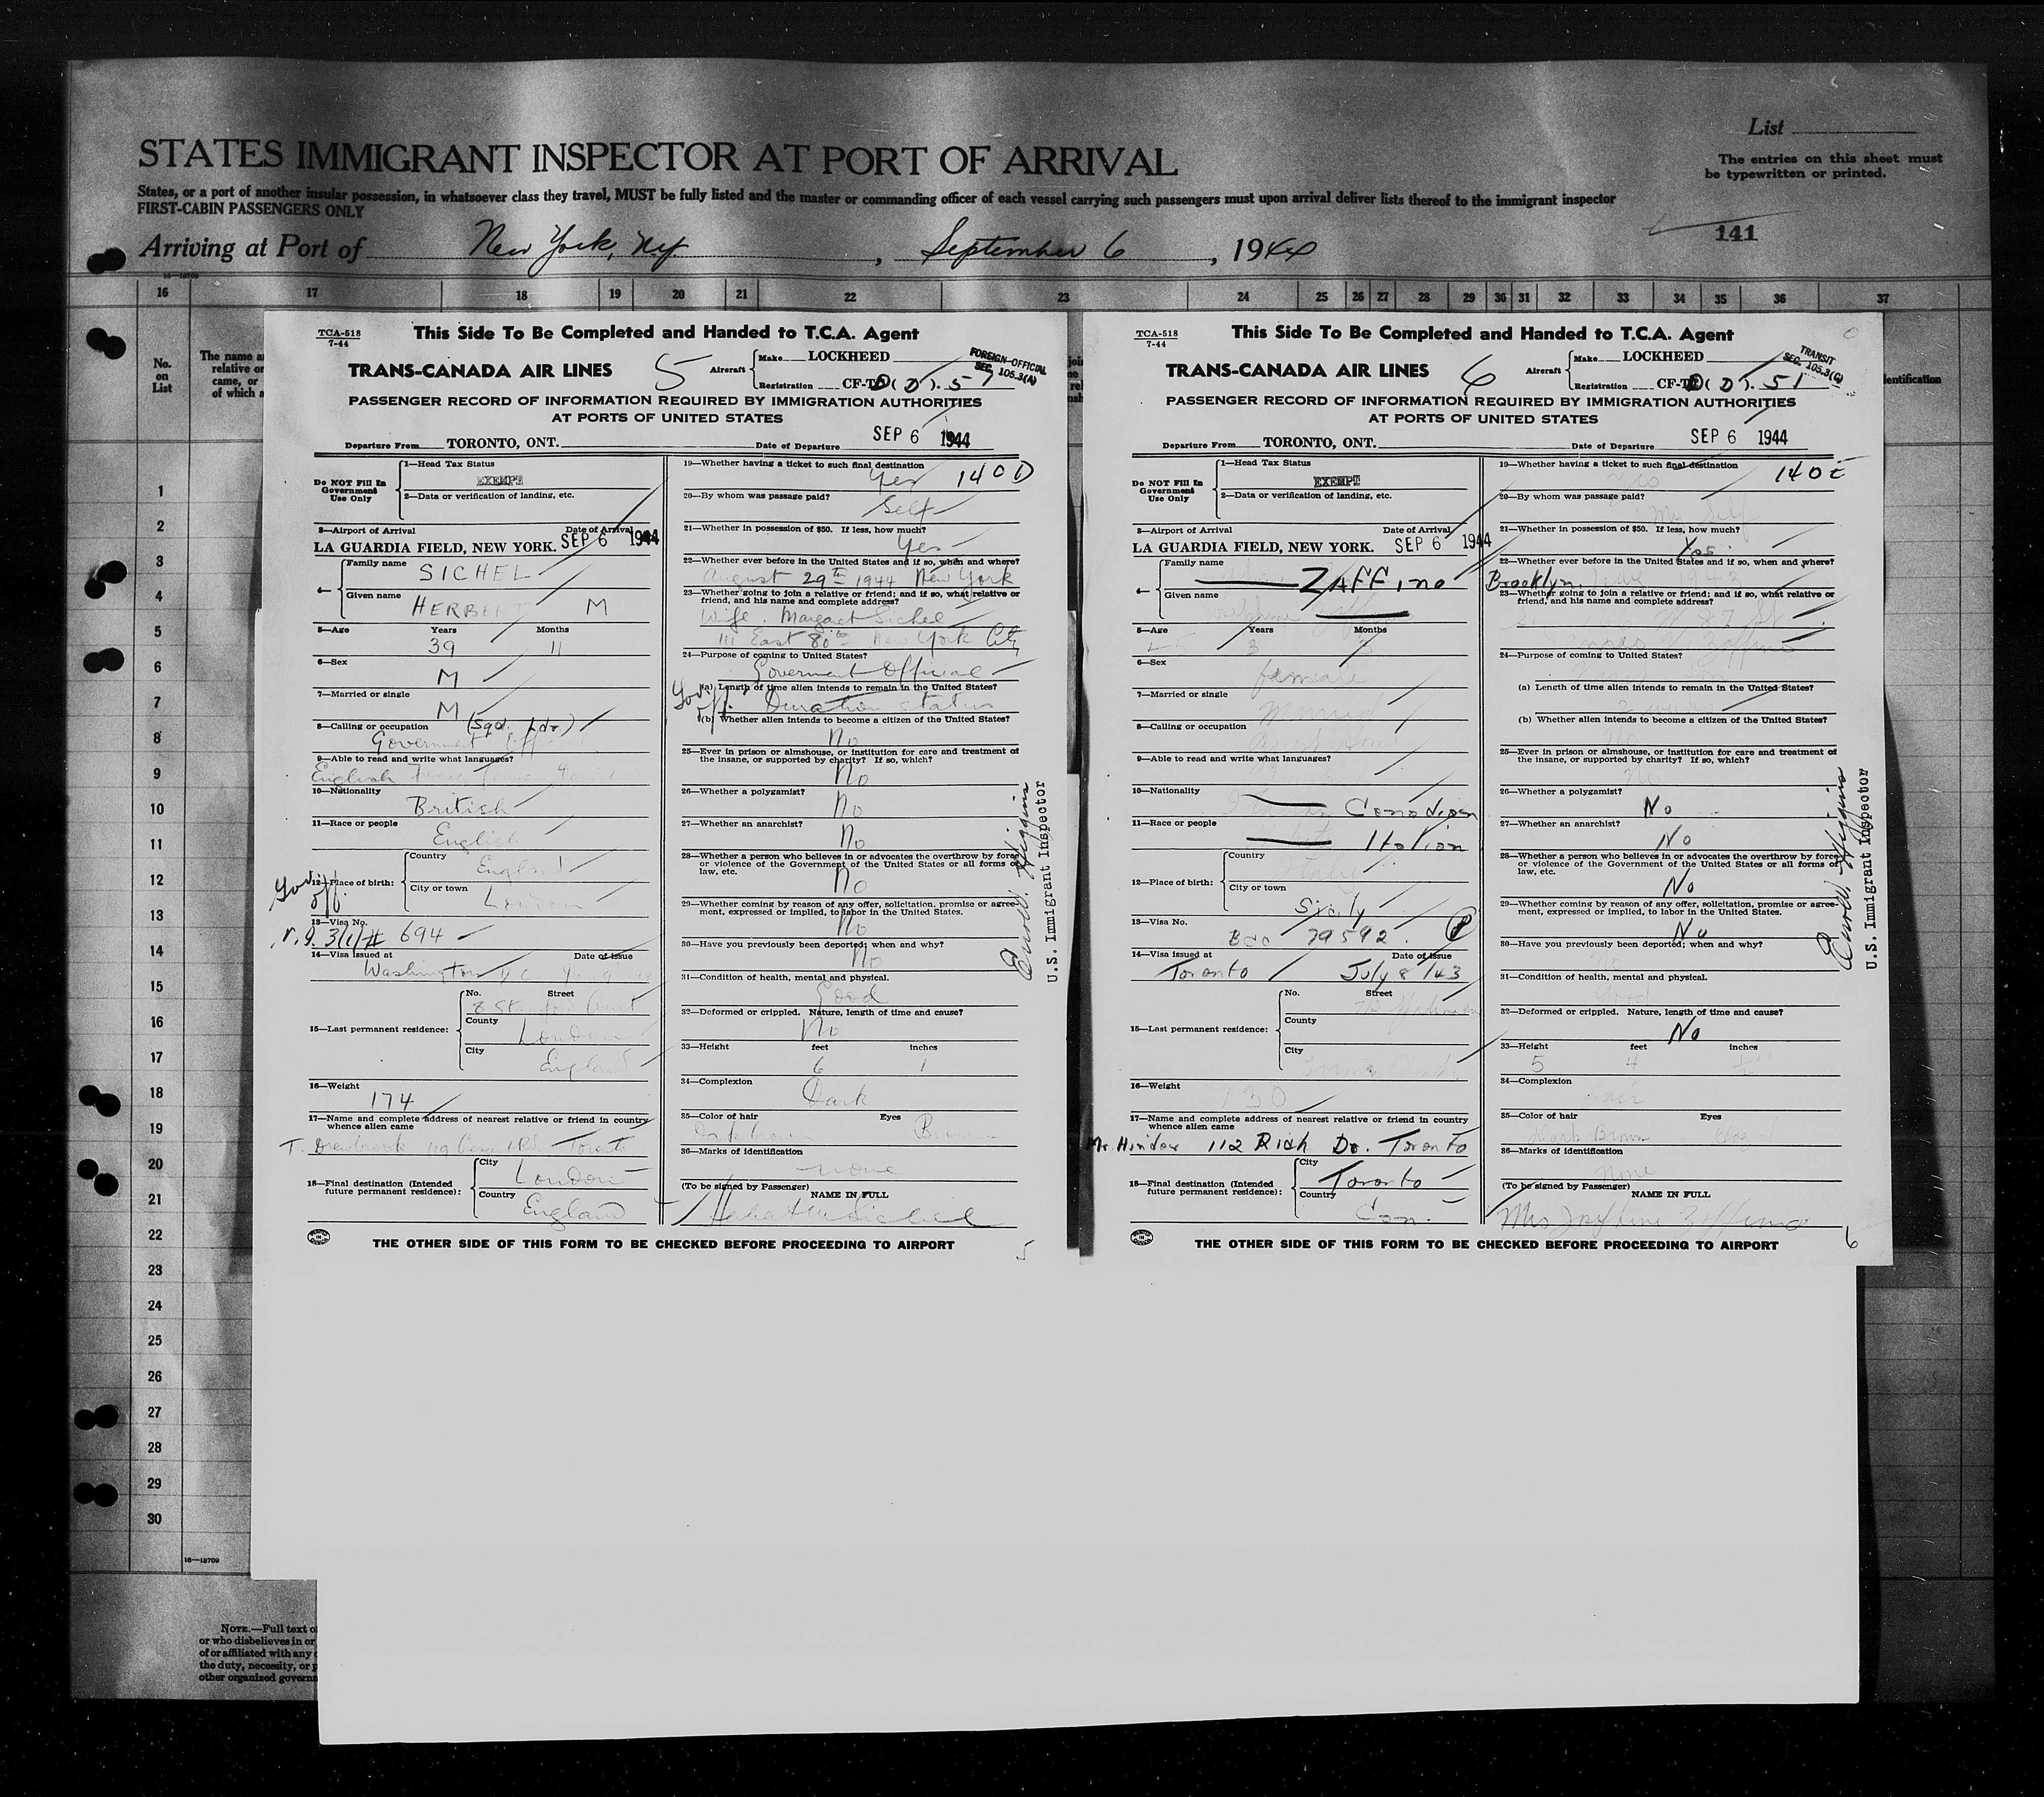 List
STATES IMMIGRANT INSPECTOR AT PORT OF ARRIVAL
The entries on this sheet must
be typewritten or printed.
States, or a port of another insular possession, in whatsoever class they travel, MUST be fully listed and the master or commanding officer of each vessel carrying such passengers must upon arrival deliver lists thereof to the immigrant inspector
FIRST-CABIN PASSENGERS ONLY
141
Arriving at Port of New York, N.Y. , September 6 , 1944
16—18709
16 17 18 19 20 21 22 23 24 25 26 27 28 29 30 31 32 33 34 35 36 37
No.
on
List
The name a
relative or
came, or
of which a
entification
TCA-518
7-44
This Side To Be Completed and Handed to T.C.A. Agent
TRANS-CANADA AIR LINES 5
Aircraft
Make LOCKHEED
Registration CF-T
FOREIGN OFFICIAL
SEC. 105.3(A)
PASSENGER RECORD OF INFORMATION REQUIRED BY IMMIGRATION AUTHORITIES
AT PORTS OF UNITED STATES
Departure From TORONTO, ONT. Date of Departure SEP 6 1944
Do NOT Fill In
Government
Use Only
1—Head Tax Status
EXEMPT
2—Data or verification of landing, etc.
3—Airport of Arrival Date of Arrival
LA GUARDIA FIELD, NEW YORK. SEP 6 1944
4—
Family name SICHEL
Given name HERBERT M
5—Age Years Months
39 11
6—Sex
M
7—Married or single
M
8—Calling or occupation (Sqd. Ldr.)
Government
9—Able to read and write what languages?
English
10—Nationality
British
11—Race or people
English
12—Place of birth:
Country
England
City or town
London
Gov.
off.
13—Visa No.
3(1) # 694
14—Visa issued at Date of Issue
Washington DC
15—Last permanent residence:
No. Street
8
County
London
City
England
16—Weight
174
17—Name and complete address of nearest relative or friend in country
whence alien came
Toronto
18—Final destination (Intended
future permanent residence):
City
London
Country
England
19—Whether having a ticket to such final destination
Yes 140 D
20—By whom was passage paid?
Self
21—Whether in possession of $50. If less, how much?
Yes
22—Whether ever before in the United States and if so, when and where?
August 29th 1944 New York
23—Whether going to join a relative or friend; and if so, what relative or
friend, and his name and complete address?
Wife. Margaret Sichel
111 East 80th New York City
24—Purpose of coming to United States?
Government Official
(a) Length of time alien intends to remain in the United States?
Gov. off. Duration status
(b) Whether alien intends to become a citizen of the United States?
No
25—Ever in prison or almshouse, or institution for care and treatment of
the insane, or supported by charity? If so, which?
No
26—Whether a polygamist?
No
27—Whether an anarchist?
No
28—Whether a person who believes in or advocates the overthrow by force
or violence of the Government of the United States or all forms of
law, etc.
No
29—Whether coming by reason of any offer, solicitation, promise or agree-
ment, expressed or implied, to labor in the United States.
No
30—Have you previously been deported; when and why?
No
31—Condition of health, mental and physical.
Good
32—Deformed or crippled. Nature, length of time and cause?
No
33—Height feet inches
6 1
34—Complexion
Dark
35—Color of hair Eyes
Dark brown Brown
36—Marks of identification
none
(To be signed by Passenger)
NAME IN FULL
Herbert M Sichel
U.S. Immigrant Inspector
THE OTHER SIDE OF THIS FORM TO BE CHECKED BEFORE PROCEEDING TO AIRPORT
5
TCA-518
7-44
This Side To Be Completed and Handed to T.C.A. Agent
TRANS-CANADA AIR LINES 6
Aircraft
Make LOCKHEED
Registration CF-T
TRANSIT
SEC. 105.3(C)
PASSENGER RECORD OF INFORMATION REQUIRED BY IMMIGRATION AUTHORITIES
AT PORTS OF UNITED STATES
Departure From TORONTO, ONT. Date of Departure SEP 6 1944
Do NOT Fill In
Government
Use Only
1—Head Tax Status
EXEMPT
2—Data or verification of landing, etc.
3—Airport of Arrival Date of Arrival
LA GUARDIA FIELD, NEW YORK. SEP 6 1944
4—
Family name ZAFFino
Given name
5—Age Years Months
45 3
6—Sex
female
7—Married or single
Married
8—Calling or occupation
9—Able to read and write what languages?
10—Nationality
Canadian
11—Race or people
Italian
12—Place of birth:
Country
Italy
City or town
Sicily
13—Visa No.
Bcc 79592
14—Visa issued at Date of Issue
Toronto July 8/43
15—Last permanent residence:
No. Street
County
City
16—Weight
130
17—Name and complete address of nearest relative or friend in country
whence alien came
112 Rich Toronto
18—Final destination (Intended
future permanent residence):
City
Toronto
Country
Can.
19—Whether having a ticket to such final destination
Yes 140 E
20—By whom was passage paid?
My Self
21—Whether in possession of $50. If less, how much?
Yes.
22—Whether ever before in the United States and if so, when and where?
Brooklyn.
23—Whether going to join a relative or friend; and if so, what relative or
friend, and his name and complete address?
24—Purpose of coming to United States?
(a) Length of time alien intends to remain in the United States?
2 weeks
(b) Whether alien intends to become a citizen of the United States?
No
25—Ever in prison or almshouse, or institution for care and treatment of
the insane, or supported by charity? If so, which?
No
26—Whether a polygamist?
No
27—Whether an anarchist?
No
28—Whether a person who believes in or advocates the overthrow by force
or violence of the Government of the United States or all forms of
law, etc.
No
29—Whether coming by reason of any offer, solicitation, promise or agree-
ment, expressed or implied, to labor in the United States.
No
30—Have you previously been deported; when and why?
No
31—Condition of health, mental and physical.
Good
32—Deformed or crippled. Nature, length of time and cause?
No
33—Height feet inches
5 4
34—Complexion
35—Color of hair Eyes
Dark Brown
36—Marks of identification
None
(To be signed by Passenger)
NAME IN FULL
Mrs Josephine Zaffino
U.S. Immigrant Inspector
THE OTHER SIDE OF THIS FORM TO BE CHECKED BEFORE PROCEEDING TO AIRPORT
6
1
2
3
4
5
6
7
8
9
10
11
12
13
14
15
16
17
18
19
20
21
22
23
24
25
26
27
28
29
30
16—18709
NOTE.—Full text o
or who disbelieves in or
of or affiliated with any
the duty, necessity, or p
other organized governm